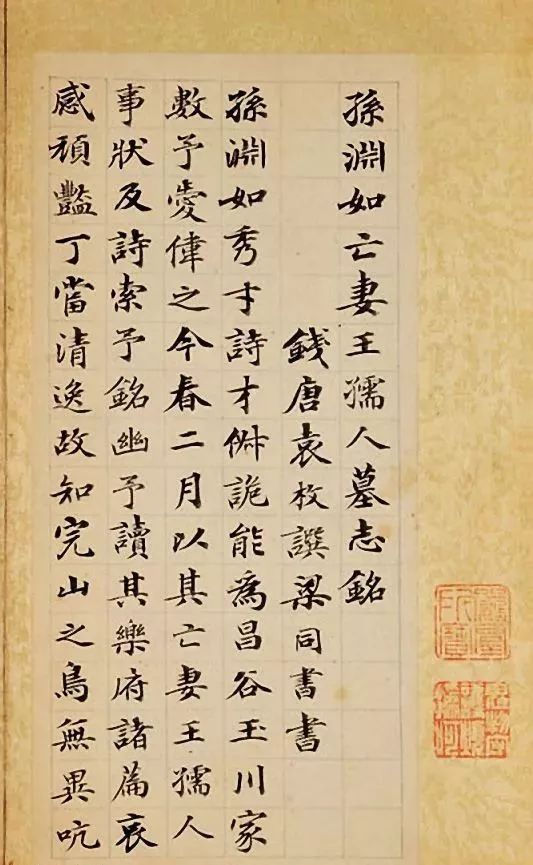 孫淵如亡妻王孺人墓志銘
錢唐袁枚譔梁同書書
孫淵如秀才詩才俶詭能爲昌谷玉川家
數予愛偉之今春二月以其亡妻王孺人
事狀及詩索予銘幽予讀其樂府諸篇哀
感頑豔丁當清逸故知完山之鳥無異吭